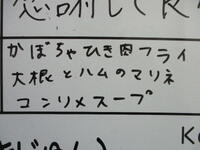 感謝して
かぼちゃひき肉フライ
大根とハムのマリネ
コンソメスープ